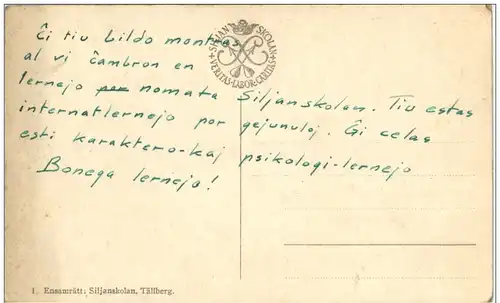 SILJAN SKOLAN
VERITAS · LABOR · CARITAS
Ĉi tiu bildo montras
al vi ĉambron en
lernejo nomata Siljanskolan. Tiu estas
internatlernejo por gejunuloj. Ĝi celas
esti karaktero-kaj psikologi-lernejo
Bonega lernejo!
1. Ensamrätt: Siljanskolan, Tällberg.